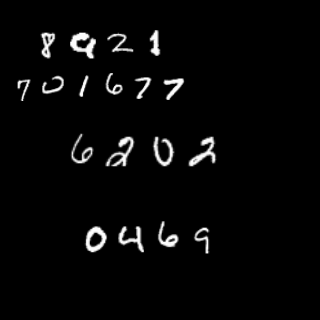 8921
701677
6202
0469